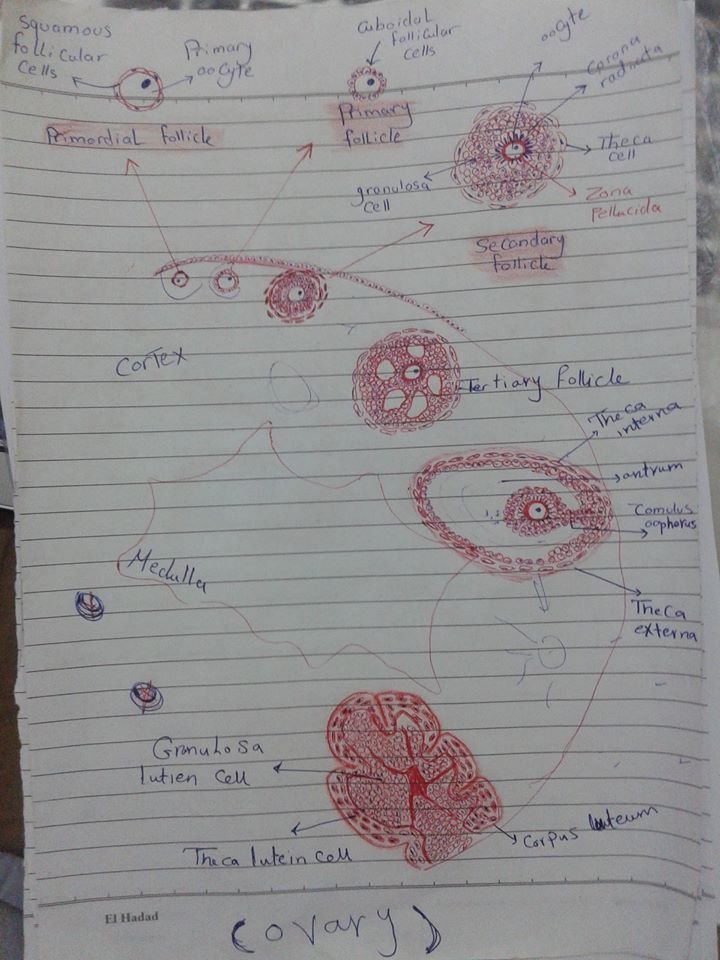 Squamous
follicular
cells
Primary
oocyte
Cuboidal
follicular
cells
oocyte
Corona
radiata
Primordial follicle
Primary
follicle
Theca
cell
granulosa
cell
Zona
Pellucida
Secondary
follicle
Cortex
Tertiary follicle
Theca
interna
antrum
Comulus
oophorus
Medulla
Theca
externa
Granulosa
lutien cell
Theca lutein cell
Corpus luteum
El Hadad
(ovary)